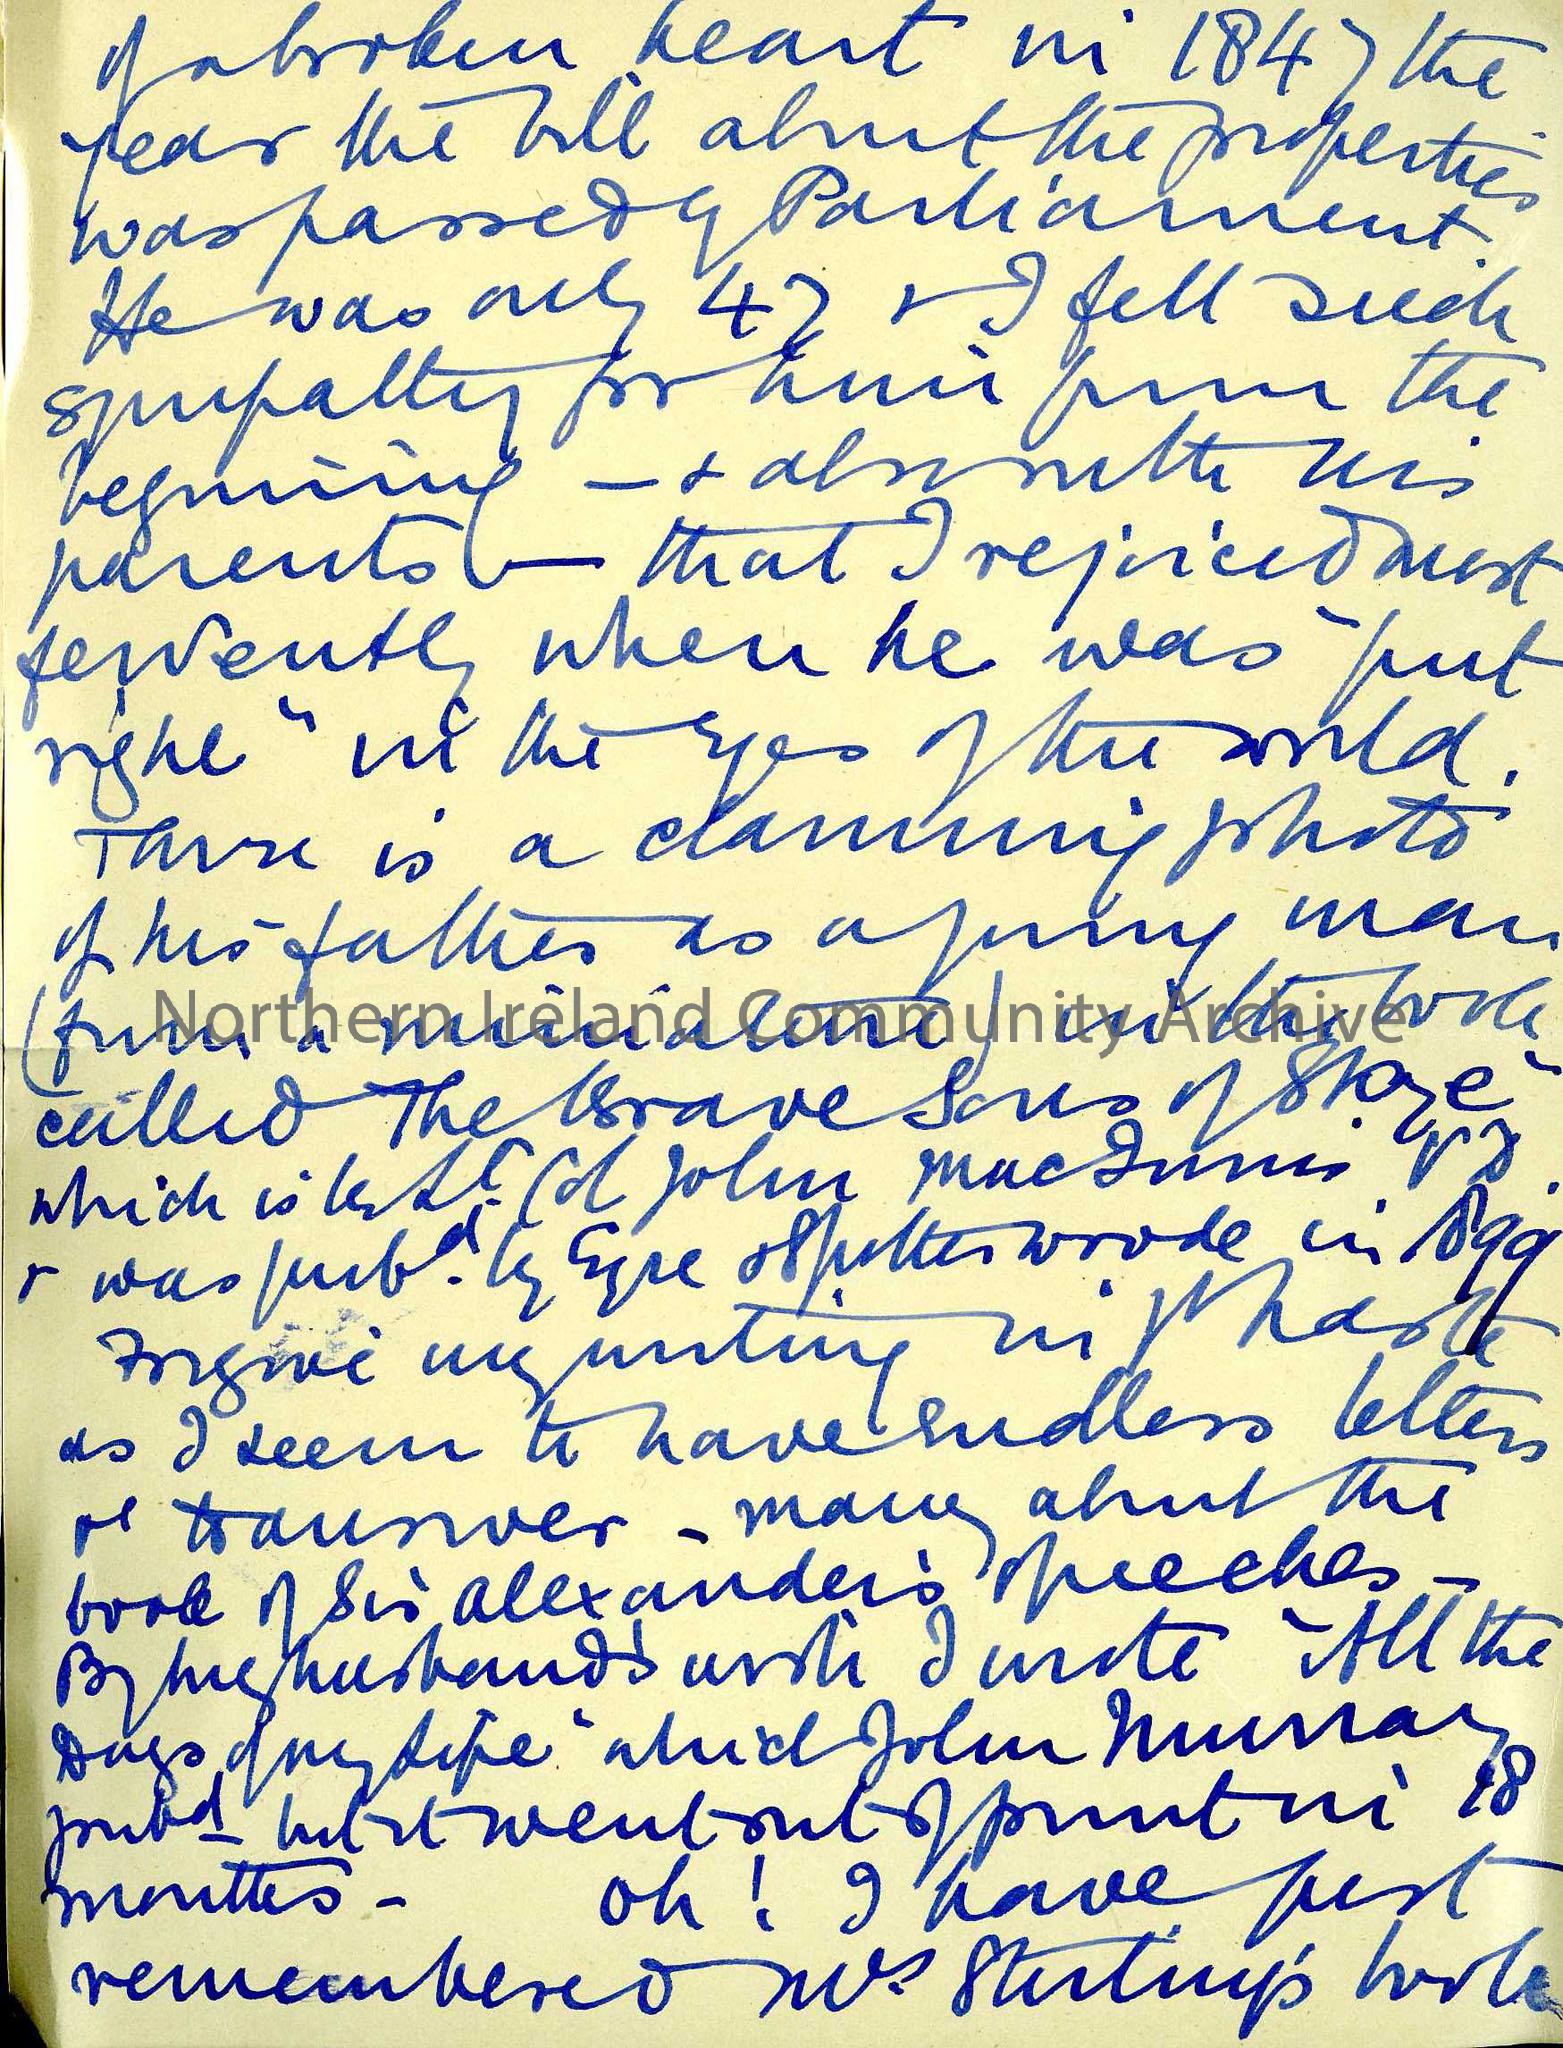 of a broken heart in 1847 the
year the bill about the properties
was passed by Parliament.
He was only 47 & I felt such
sympathy for him from the
beginning — & also with his
parents — that I rejoiced most
fervently when he was "put
right" in the Eyes of the world.
There is a charming photo
of his father as a young man
(from a miniature) in the book
called "The Brave Sons of Skye"
which is by Lt. Col John MacInnis V.D.
& was pubd. by Eyre & Spottiswoode in 1899
Forgive my writing in gt haste
as I seem to have endless letters
to answer - many about the
book of Sir Alexander's speeches -
By my husband's wish I wrote "All the
Dogs of my Life" which John Murray
pubd - but it went out of print in 18
months - Oh! I have just
remembered Mrs Stirling's book
Northern Ireland Community Archive